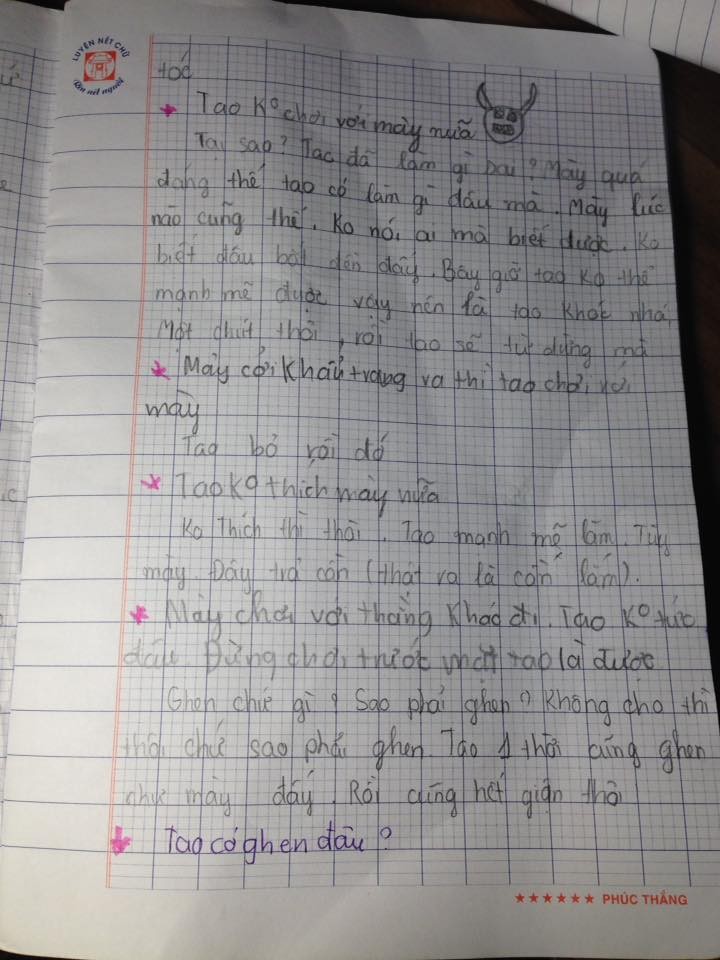 LUYỆN NÉT CHỮ
Rèn nết người
tóc
★ Tao Kº chơi với mày nữa
Tại sao? Tao đã làm gì sai? Mày quá
đáng thế tao có làm gì đâu mà. Mày lúc
nào cũng thế. Ko nói ai mà biết được. Ko
biết đâu đấy. Bây giờ tao ko thể
mạnh mẽ được vậy nên là tao khóc nhá,
Một chút thôi, rồi tao sẽ tự đứng mà
★ Mày cởi khẩu trang ra thì tao chơi với
mày
Tao bỏ rồi đó
★ Tao Kº thích mày nữa
Ko Thích thì thôi. Tao mạnh mẽ lắm. Tùy
mày. Đây trả cần (thật ra là cần lắm).
★ Mày chơi với thằng khác đi. Tao Kº tức
đâu. Đừng chơi trước mặt tao là được
Ghen chứ gì? Sao phải ghen? Không cho thì
thôi chứ sao phải ghen. Tao 1 thời cũng ghen
như mày đấy. Rồi cũng hết giận thôi
Tao có ghen đâu?
★★★★★★ PHÚC THẮNG